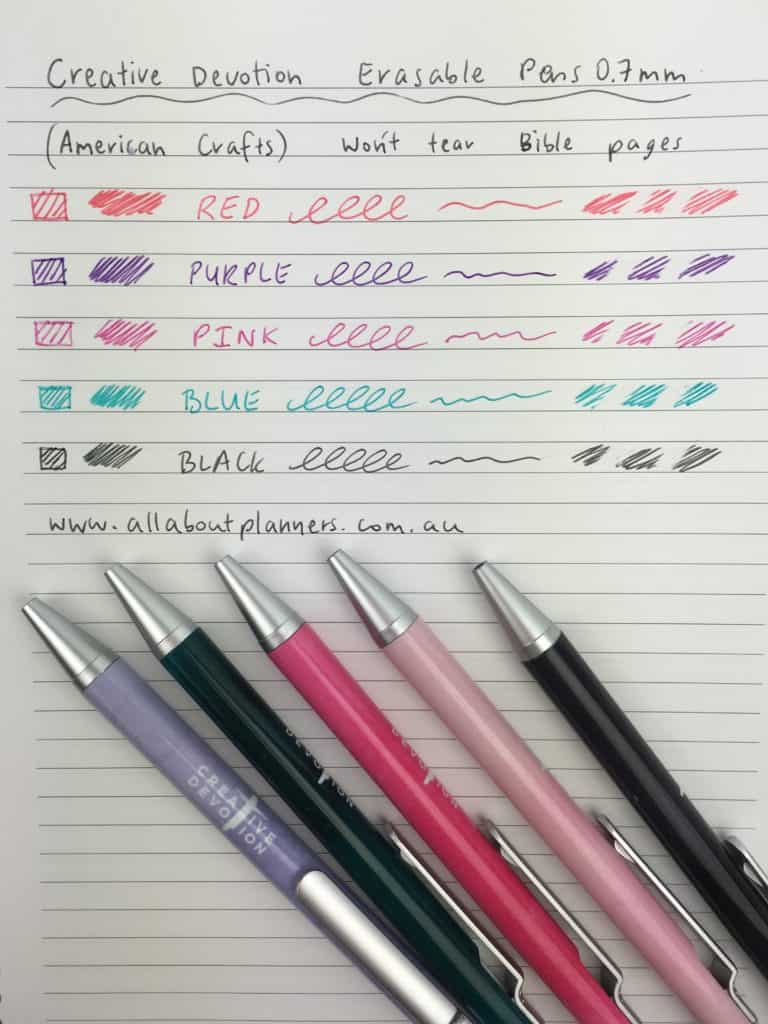 Creative Devotion Erasable Pens 0.7mm
(American Crafts) Won't tear Bible pages
RED
PURPLE
PINK
BLUE
BLACK
www.allaboutplanners.com.au
CREATIVE
DEVOTION
DEVOTION
DEVOTION